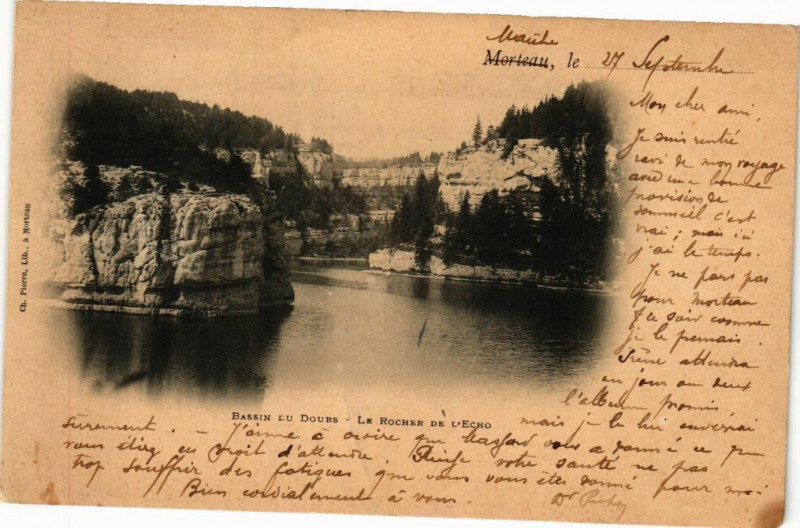 Morteau, le 27 Septembre
Mon cher ami,
Je suis rentré
ravi de mon voyage
avec une bonne
provision de
sommeil c'est
vrai ; mais ici
j'ai le temps.
Je ne pars pas
pour Morteau
ce soir comme
je le pensais.
Irène attendra
un jour ou deux
l'album promis,
mais je le lui enverrai
sûrement. - J'aime à croire que vous a donné ce que
vous étiez en droit d'attendre. Puisse votre santé ne pas
trop souffrir des fatigues que vous vous êtes donné pour moi
Bien cordialement à vous.
Dr
BASSIN DU DOUBS - LE ROCHER DE L'ECHO
Ch. Pierre, Lib., à Morteau